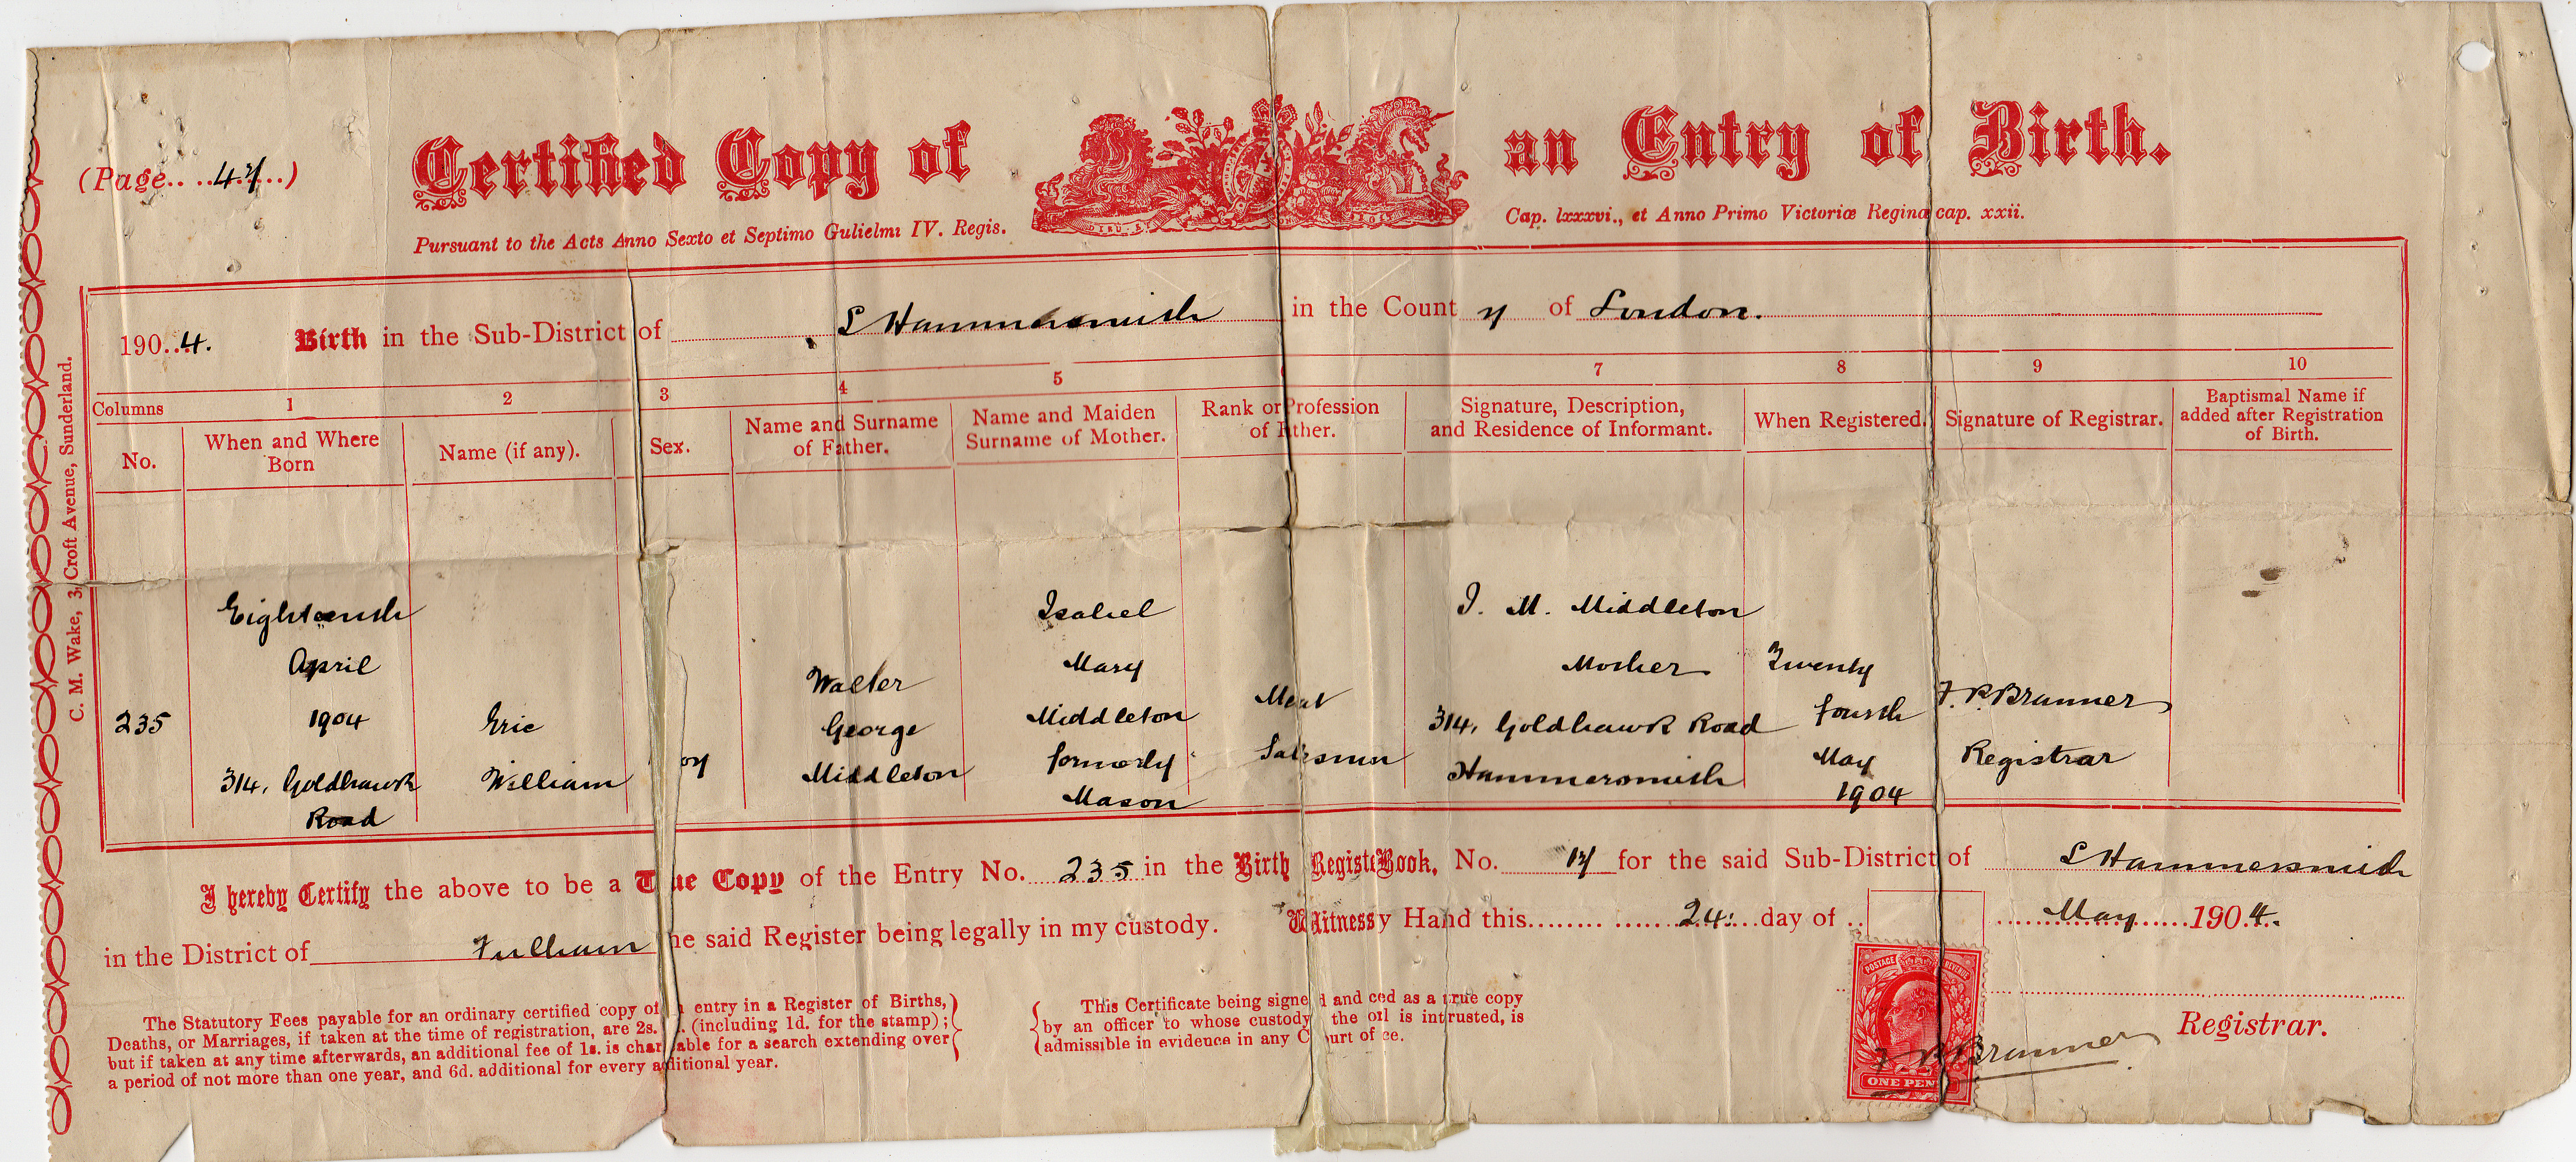 (Page.. ..47...)
Certified Copy of an Entry of Birth.
Pursuant to the Acts Anno Sexto et Septimo Gulielmi IV. Regis. Cap. lxxxvi., et Anno Primo Victoriæ Reginæ cap. xxii.
DIEU ET
C. M. Wake, 3, Croft Avenue, Sunderland.
1904. Birth in the Sub-District of S Hammersmith in the County of London.
Columns 1 2 3 4 5 7 8 9 10
No.
When and Where
Born
Name (if any).
Sex.
Name and Surname
of Father.
Name and Maiden
Surname of Mother.
Rank or Profession
of Father.
Signature, Description,
and Residence of Informant.
When Registered.
Signature of Registrar.
Baptismal Name if
added after Registration
of Birth.
235
Eighteenth
April
1904
314, Goldhawk
Road
Eric
William
oy
Walter
George
Middleton
Isabel
Mary
Middleton
formerly
Mason
Meat
Salesman
I. M. Middleton
Mother
314, Goldhawk Road
Hammersmith
Twenty
fourth
May
1904
F. P. Brunner
Registrar
I hereby Certify the above to be a True Copy of the Entry No. 235 in the Birth Registe Book, No. 17 for the said Sub-District of S Hammersmith
in the District of Fulham he said Register being legally in my custody. Witness y Hand this 24. day of May 1904.
The Statutory Fees payable for an ordinary certified copy of entry in a Register of Births,
Deaths, or Marriages, if taken at the time of registration, are 2s. . (including 1d. for the stamp);
but if taken at any time afterwards, an additional fee of 1s. is char able for a search extending over
a period of not more than one year, and 6d. additional for every additional year.
This Certificate being signed and ced as a true copy
by an officer to whose custody the oil is intrusted, is
admissible in evidence in any Court of ce.
POSTAGE REVENUE
ONE PEN
F P Brunner
Registrar.